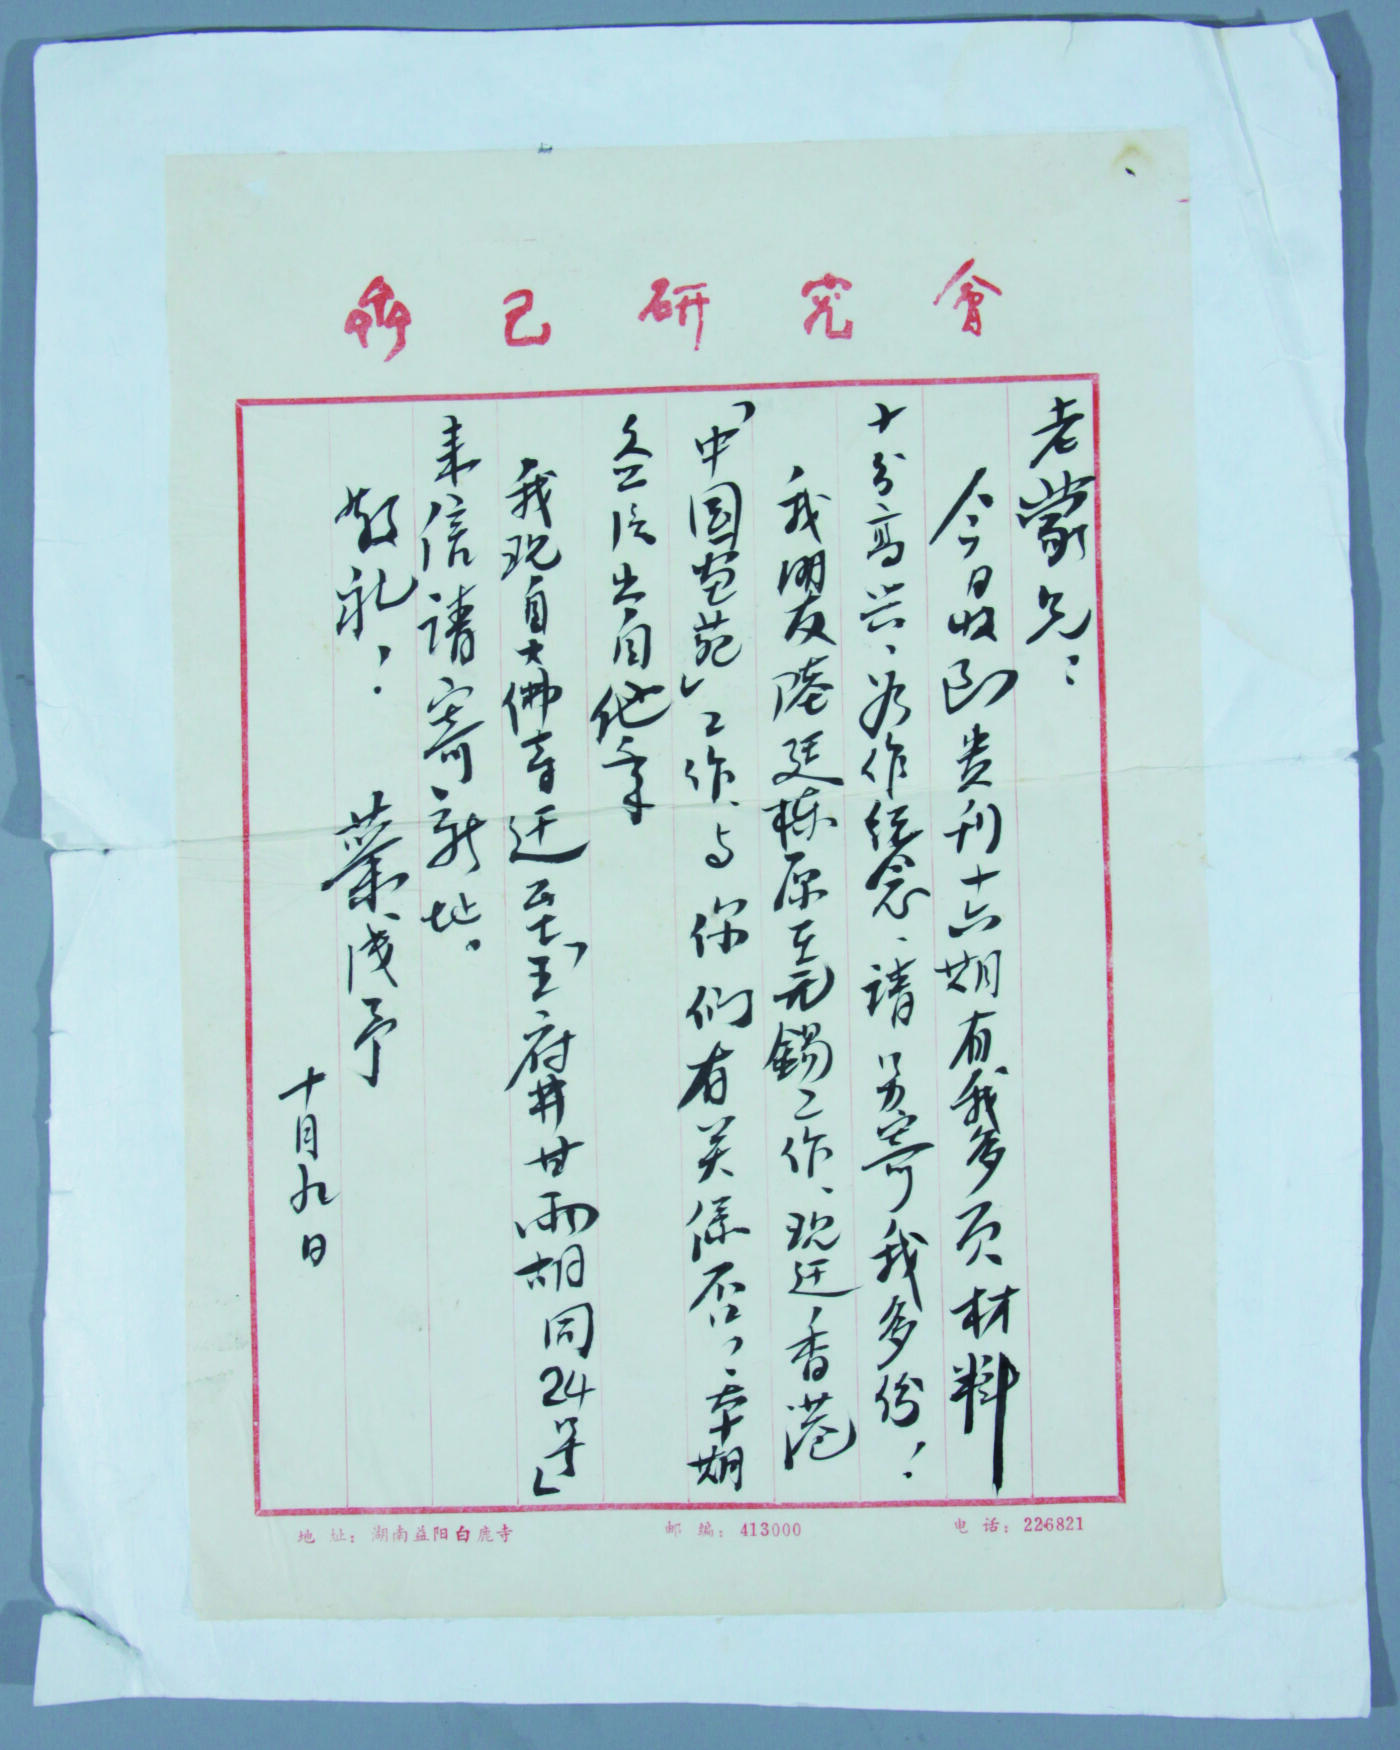 齐己研究會
老蒙兄：
今日收到贵刊十六期有我多页材料
十分高兴、为作纪念、请另寄我多份！
我朋友陆廷栋原在无锡工作、现迁香港
「中国画苑」工作、与你们有关係否，本期
出自他手
我现自大佛寺迁至「王府井甘雨胡同24号」
来信请寄新址。
敬礼！
萧成予
十月九日
地 址：湖南益阳白鹿寺 邮 编：413000 电 话：226821